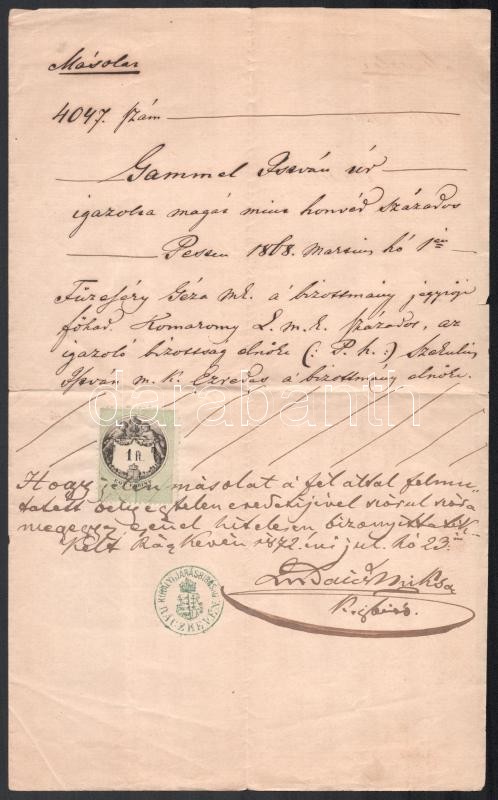 Másolat
4047. szám
Gammel István úr
igazolta magát mint honvéd százados
Pesten 1868. Martius hó 1én
Füzeséry Géza mk. a bizottmány jegyzője
főhad. Komáromy L. m.k. százados, az
igazoló bizottság elnöke (: P. h. :) Szekulits
István m. k. Ezredes a bizottmány elnöke.
darabanth
1 ft.
Hogy jelen másolat a fél által felmu-
tatott bélyegtelen eredetijével szórul szóra
megegyez ezenel hitelesen bizonyittatik
Kelt Ráczkevén 1872 évi jul. hó 23.
Miksa
KIRÁLYI JÁRÁSBIRÓSÁG
RÁCZKEVÉN